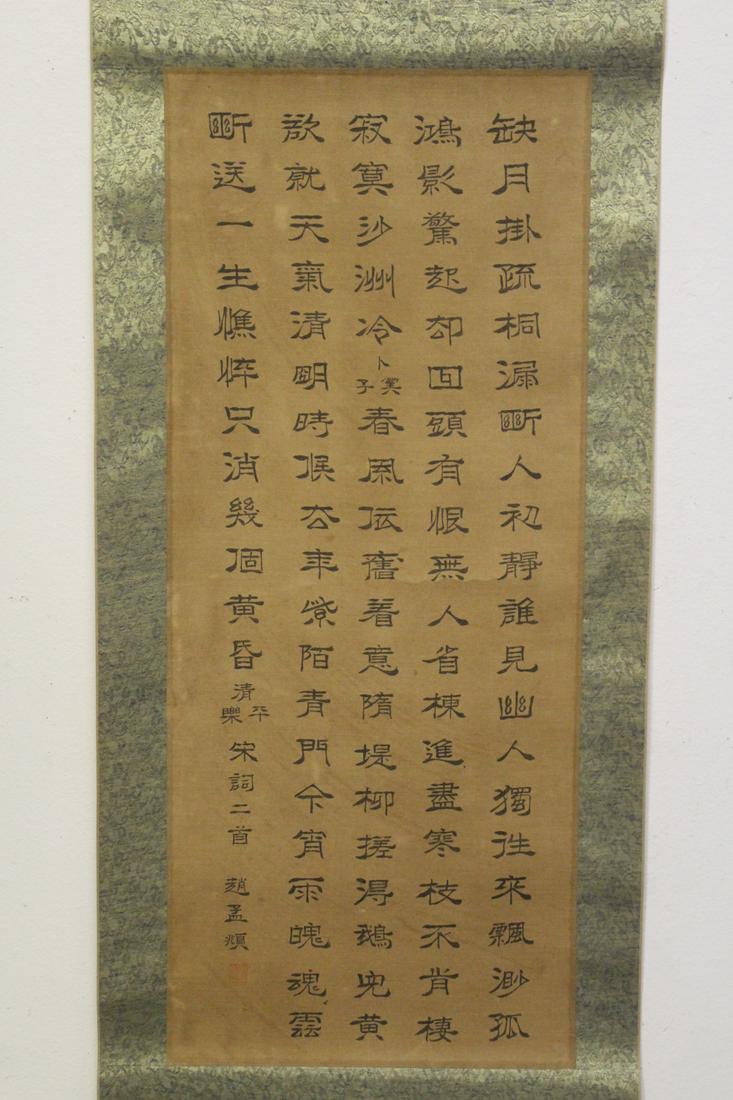 缺月掛疏桐漏斷人初靜誰見幽人獨往來飄渺孤
鴻影驚起却回頭有恨無人省棟進盡寒枝不肯棲
寂寞沙洲冷卜算子春風依舊着意隋堤柳搓得鵝兒黄
欲就天氣清明時候去年紫陌青門今宵雨魄魂雲
斷送一生憔悴只消幾個黄昏清平樂宋詞二首 趙孟頫